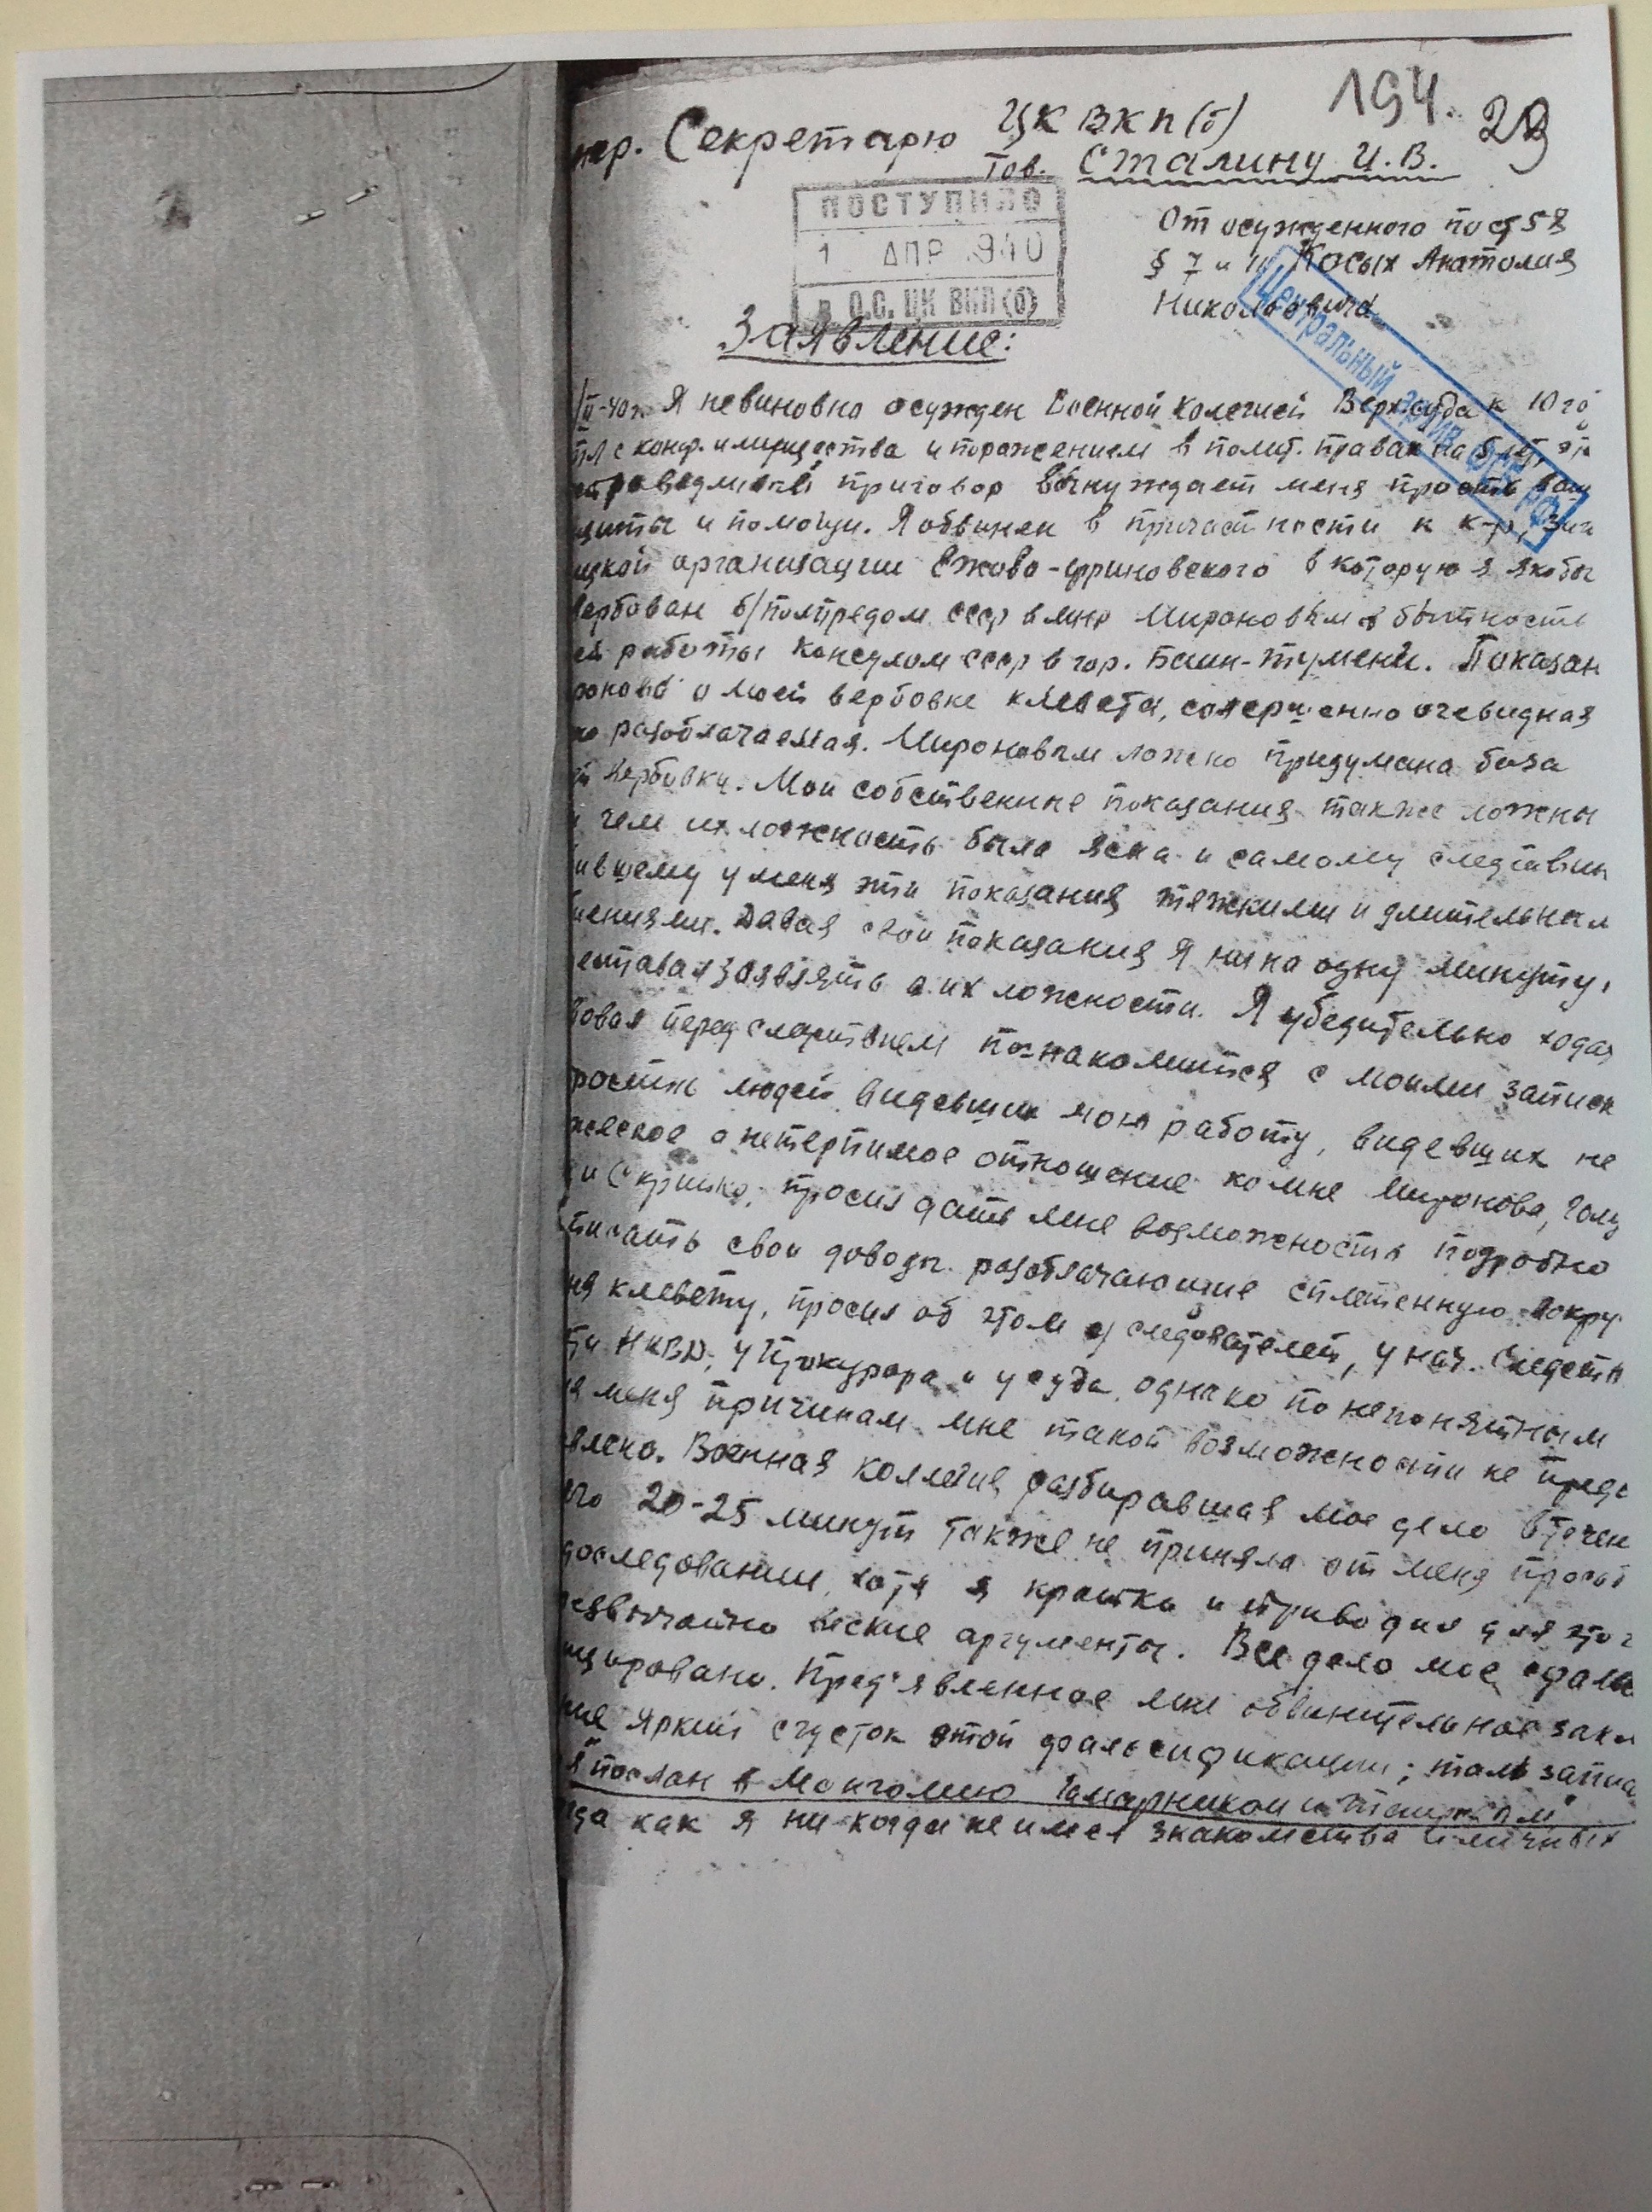 194. 29
пер. Секретарю ЦК ВКП(б)
Тов. Сталину И.В.
ПОСТУПИЛО
1 АПР 1940
в О.С. ЦК ВКП(б)
От осужденного по ст 58
§ 7 и 11 Косых Анатолия
Николаевича
Центральный архив ФСБ РФ
Заявление:
Я невиновно осужден Военной Колегией Верхсуда к 10 го
с конф. имущества и поражением в полит. правах на 5 лет, эт
справедливый приговор вынуждает меня просить ваш
щиты и помощи. Я обвинен в причастности к к-р,
ицкой организации Ежова-Фриновского в которую я якобы
вербован б/полпредом СССР в МНР Мироновым в бытность
ей работы консулом СССР в гор. Баин-Тумени. Показан
ронова о моей вербовке клевета, совершенно очевидная
ко разоблачаемая. Мироновым ложно придумана база
вербовки. Мои собственные показания также ложны
и чем их ложность была ясна и самому следствию
ившему у меня эти показания тяжкими и длительным
иениями. Давая свои показания я ни на одну минуту,
еставал заявлять о их ложности. Я убедительно хода
вовал перед следствием познакомится с моими записк
росить людей видевших мою работу, видевших не
жеское а нетерпимое отношение ко мне Миронова, Голу
и Скрипко, просил дать мне возможность подробно
писать свои доводы разоблачающие сплетенную вокру
ня клевету, просил об этом у следователей, у нач. следств
ти НКВД, у Прокурора и у суда, однако по непонятным
я меня причинам мне такой возможности не предс
влено. Военная коллегия разбиравшая мое дело в течен
его 20-25 минут также не приняла от меня прось
доследовании, хотя я кратко и приводил для этог
резвычайно веские аргументы. Все дело мое фальс
ицировано. Пред'явленное мне обвинительное закл
ние яркий сгусток этой фальсификации; там запис
я "послан в Монголию Гамарником и Таировым"
гда как я никогда не имел знакомства и личных